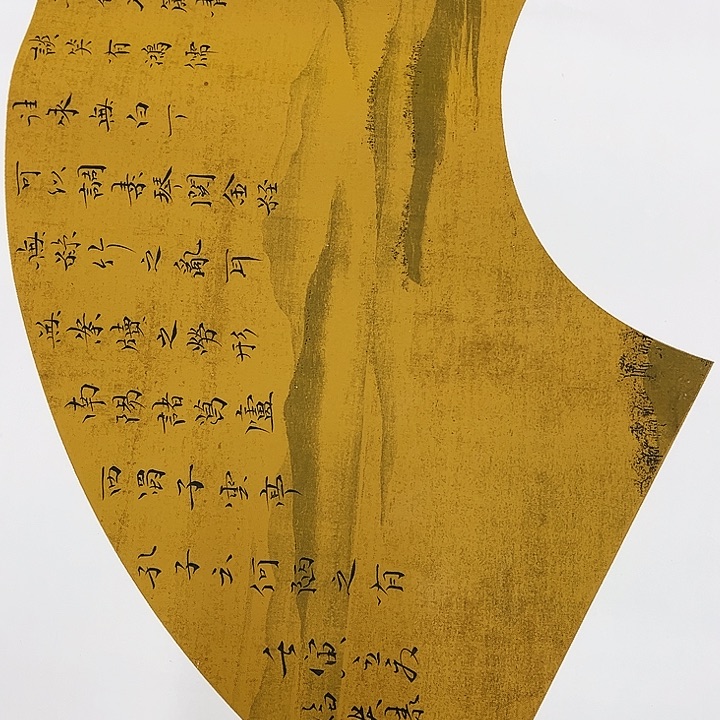 談笑有鴻儒
往來無白丁
可以調素琴閱金經
無絲竹之亂耳
無案牘之勞形
南陽諸葛廬
西蜀子雲亭
孔子云何陋之有
壬寅立秋